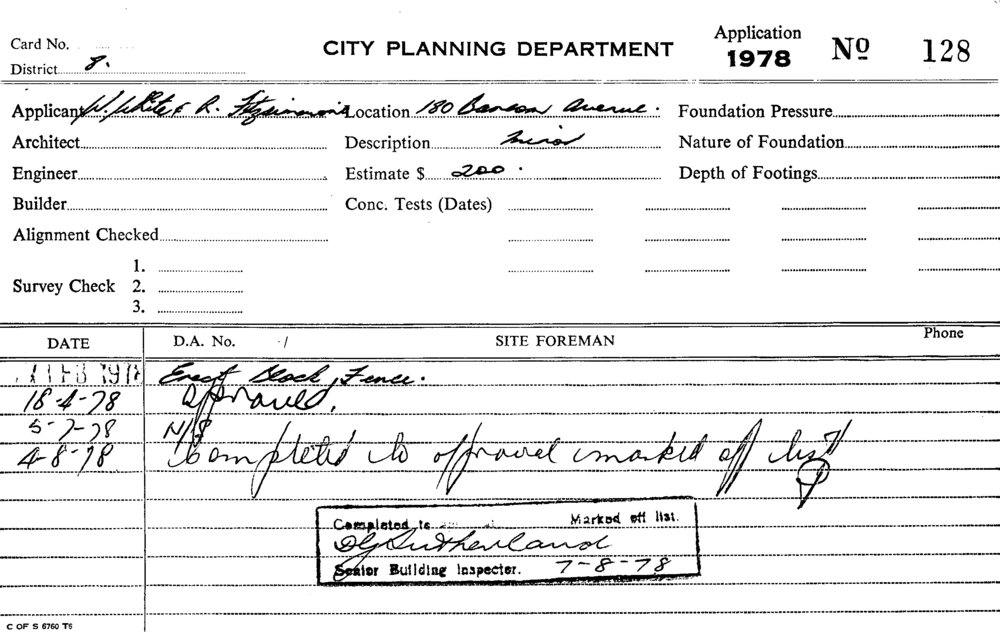 Card No.
CITY PLANNING DEPARTMENT
Application
1978
Nº 128
District 8.
Applicant W. White & R. Fitzsimmons Location 180 Avenue. Foundation Pressure
Architect Description minor Nature of Foundation
Engineer Estimate $ 200. Depth of Footings
Builder Conc. Tests (Dates)
Alignment Checked
1.
Survey Check 2.
3.
DATE D.A. No. SITE FOREMAN Phone
FEB 1978 Erect Block Fence.
18-4-78 approved.
5-7-78 N/S
4-8-78 Completed to approval marked off list
Completed to Marked off list.
DG Sutherland
Senior Building Inspector. 7-8-78
C OF S 6760 T6